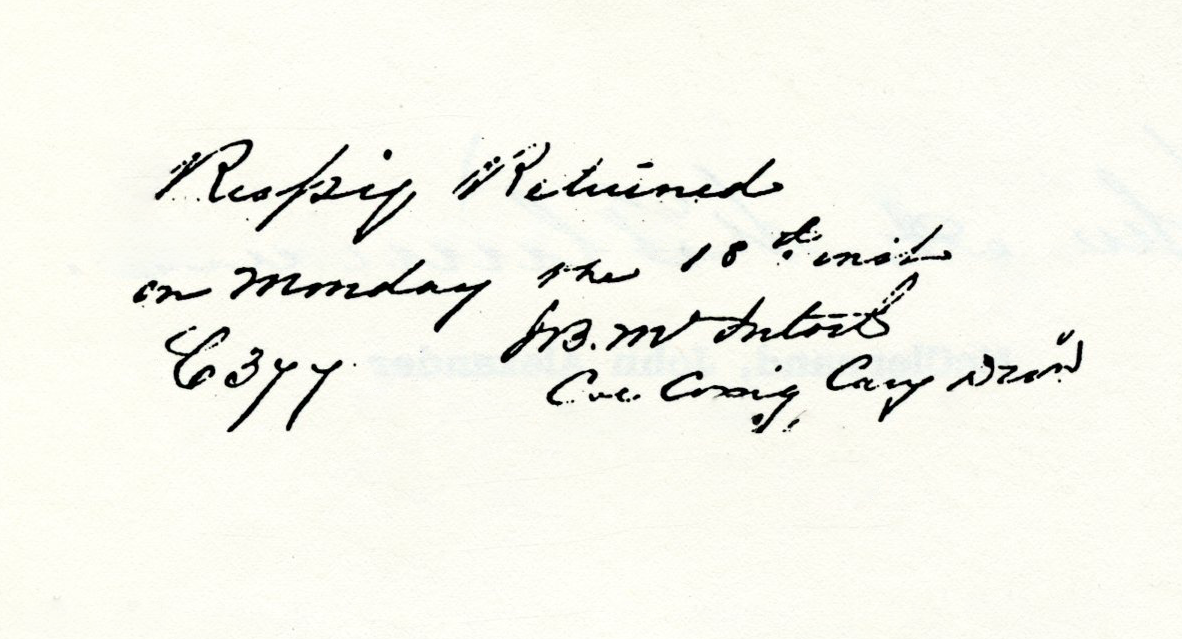 Respfy Returned
on Monday the 18th inst
J B. McIntosh
C 377
Col Comdg Cavy Divn